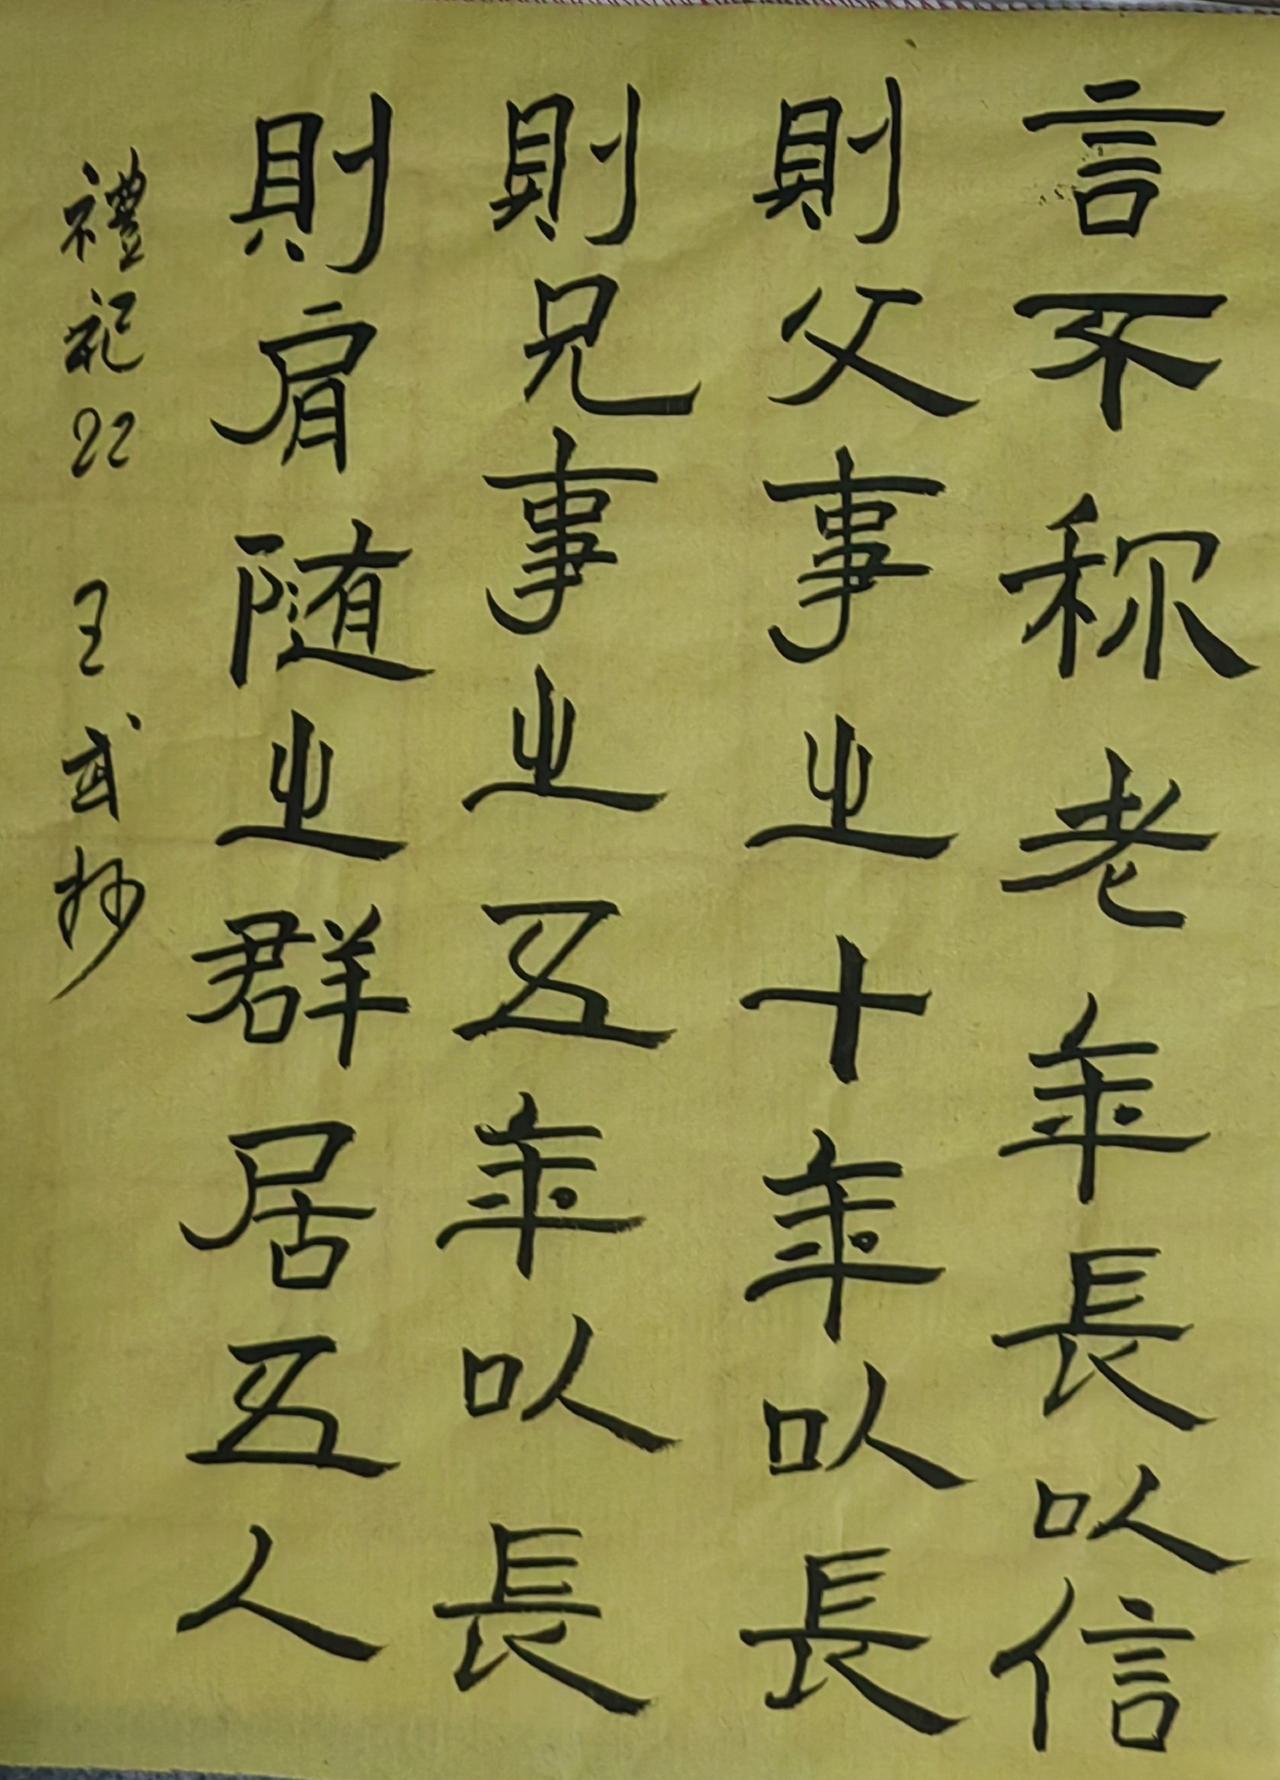 言不称老年長以信
則父事之十年以長
則兄事之五年以長
則肩随之群居五人
禮記22 王武抄